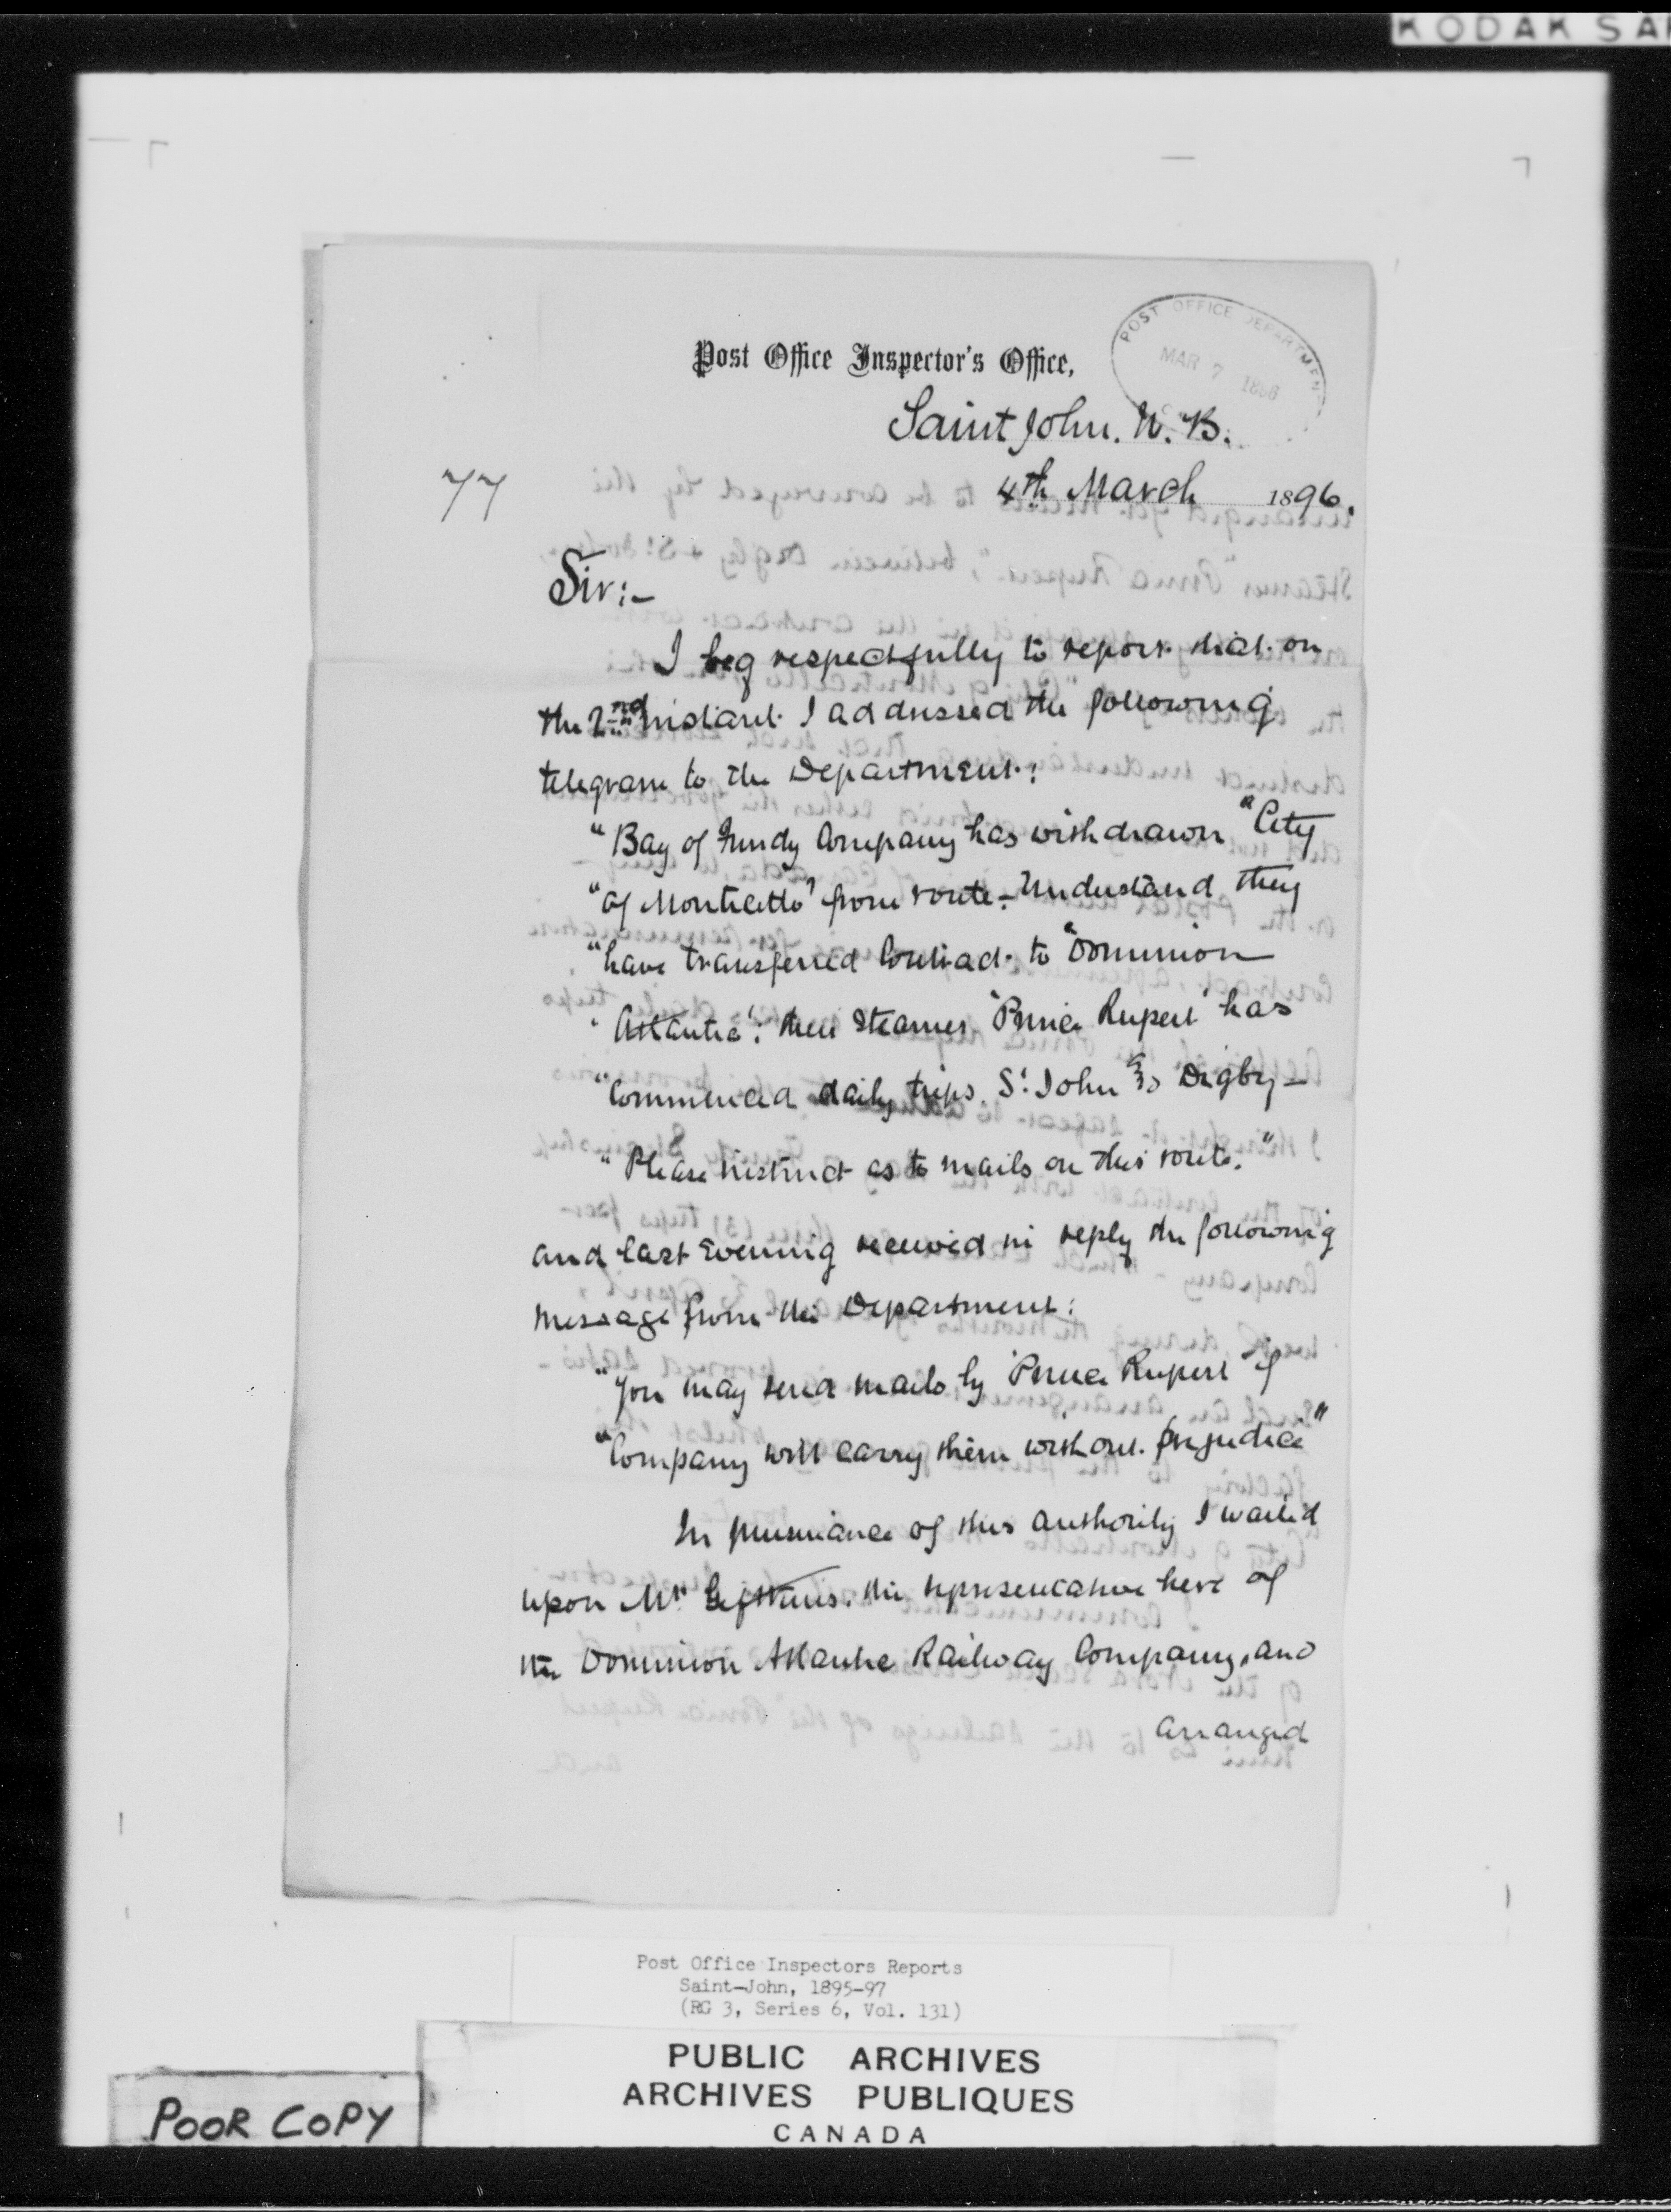 KODAK SA
POST OFFICE DEPARTMEN
MAR 7 1896
Post Office Inspector's Office,
Saint John. N. B.
77
4th March 1896.
Sir:-
I beg respectfully to report that on
the 2nd instant I addressed the following
telegram to the Department:
"Bay of Fundy Company has withdrawn "City
"of Monticello" from route - Understand they
"have transferred Contract to "Dominion
"Atlantic": their Steamer "Prince Rupert" has
"Commenced daily trips St John to Digby -
"Please instruct as to mails on this route."
and last Evening received in reply the following
message from the Department:
"You may send mails by "Prince Rupert" if
"Company will carry them without prejudice"
In pursuance of this authority I waited
upon Mr the representative here of
the Dominion Atlantic Railway Company, and
arranged
Post Office Inspectors Reports
Saint-John, 1895-97
(RG 3, Series 6, Vol. 131)
PUBLIC ARCHIVES
ARCHIVES PUBLIQUES
CANADA
POOR COPY